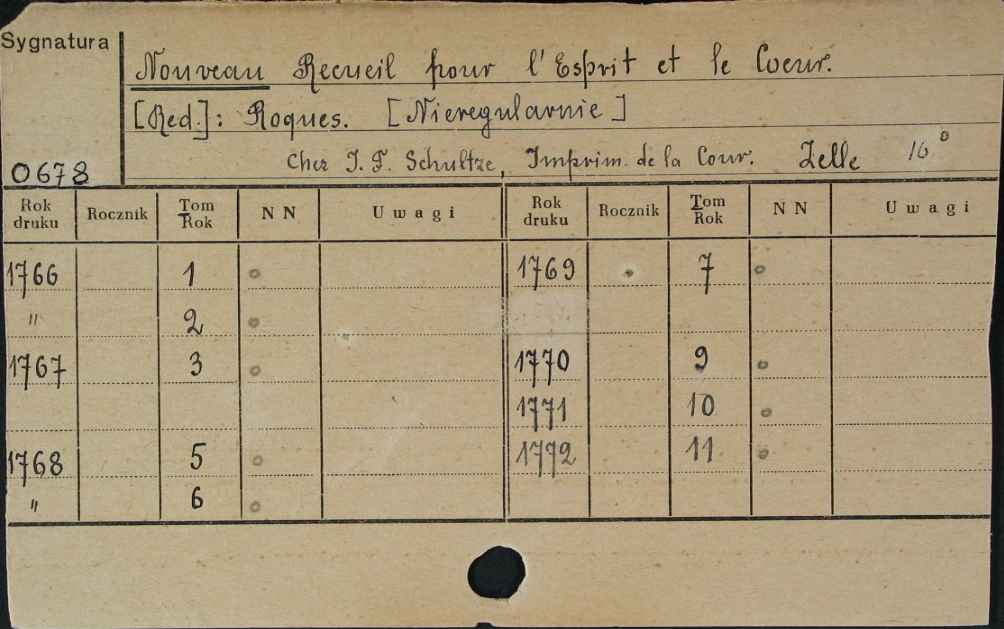 Sygnatura
Nouveau Recueil pour l'Esprit et le Coeur.
[Red.]: Roques. [Nieregularnie]
0678
Chez J. F. Schultze, Imprim. de la Cour. Zelle 16°
Rok druku Rocznik Tom Rok NN Uwagi Rok druku Rocznik Tom Rok NN Uwagi
1766 1 1769 7
" 2
1767 3 1770 9
1771 10
1768 5 1772 11
" 6